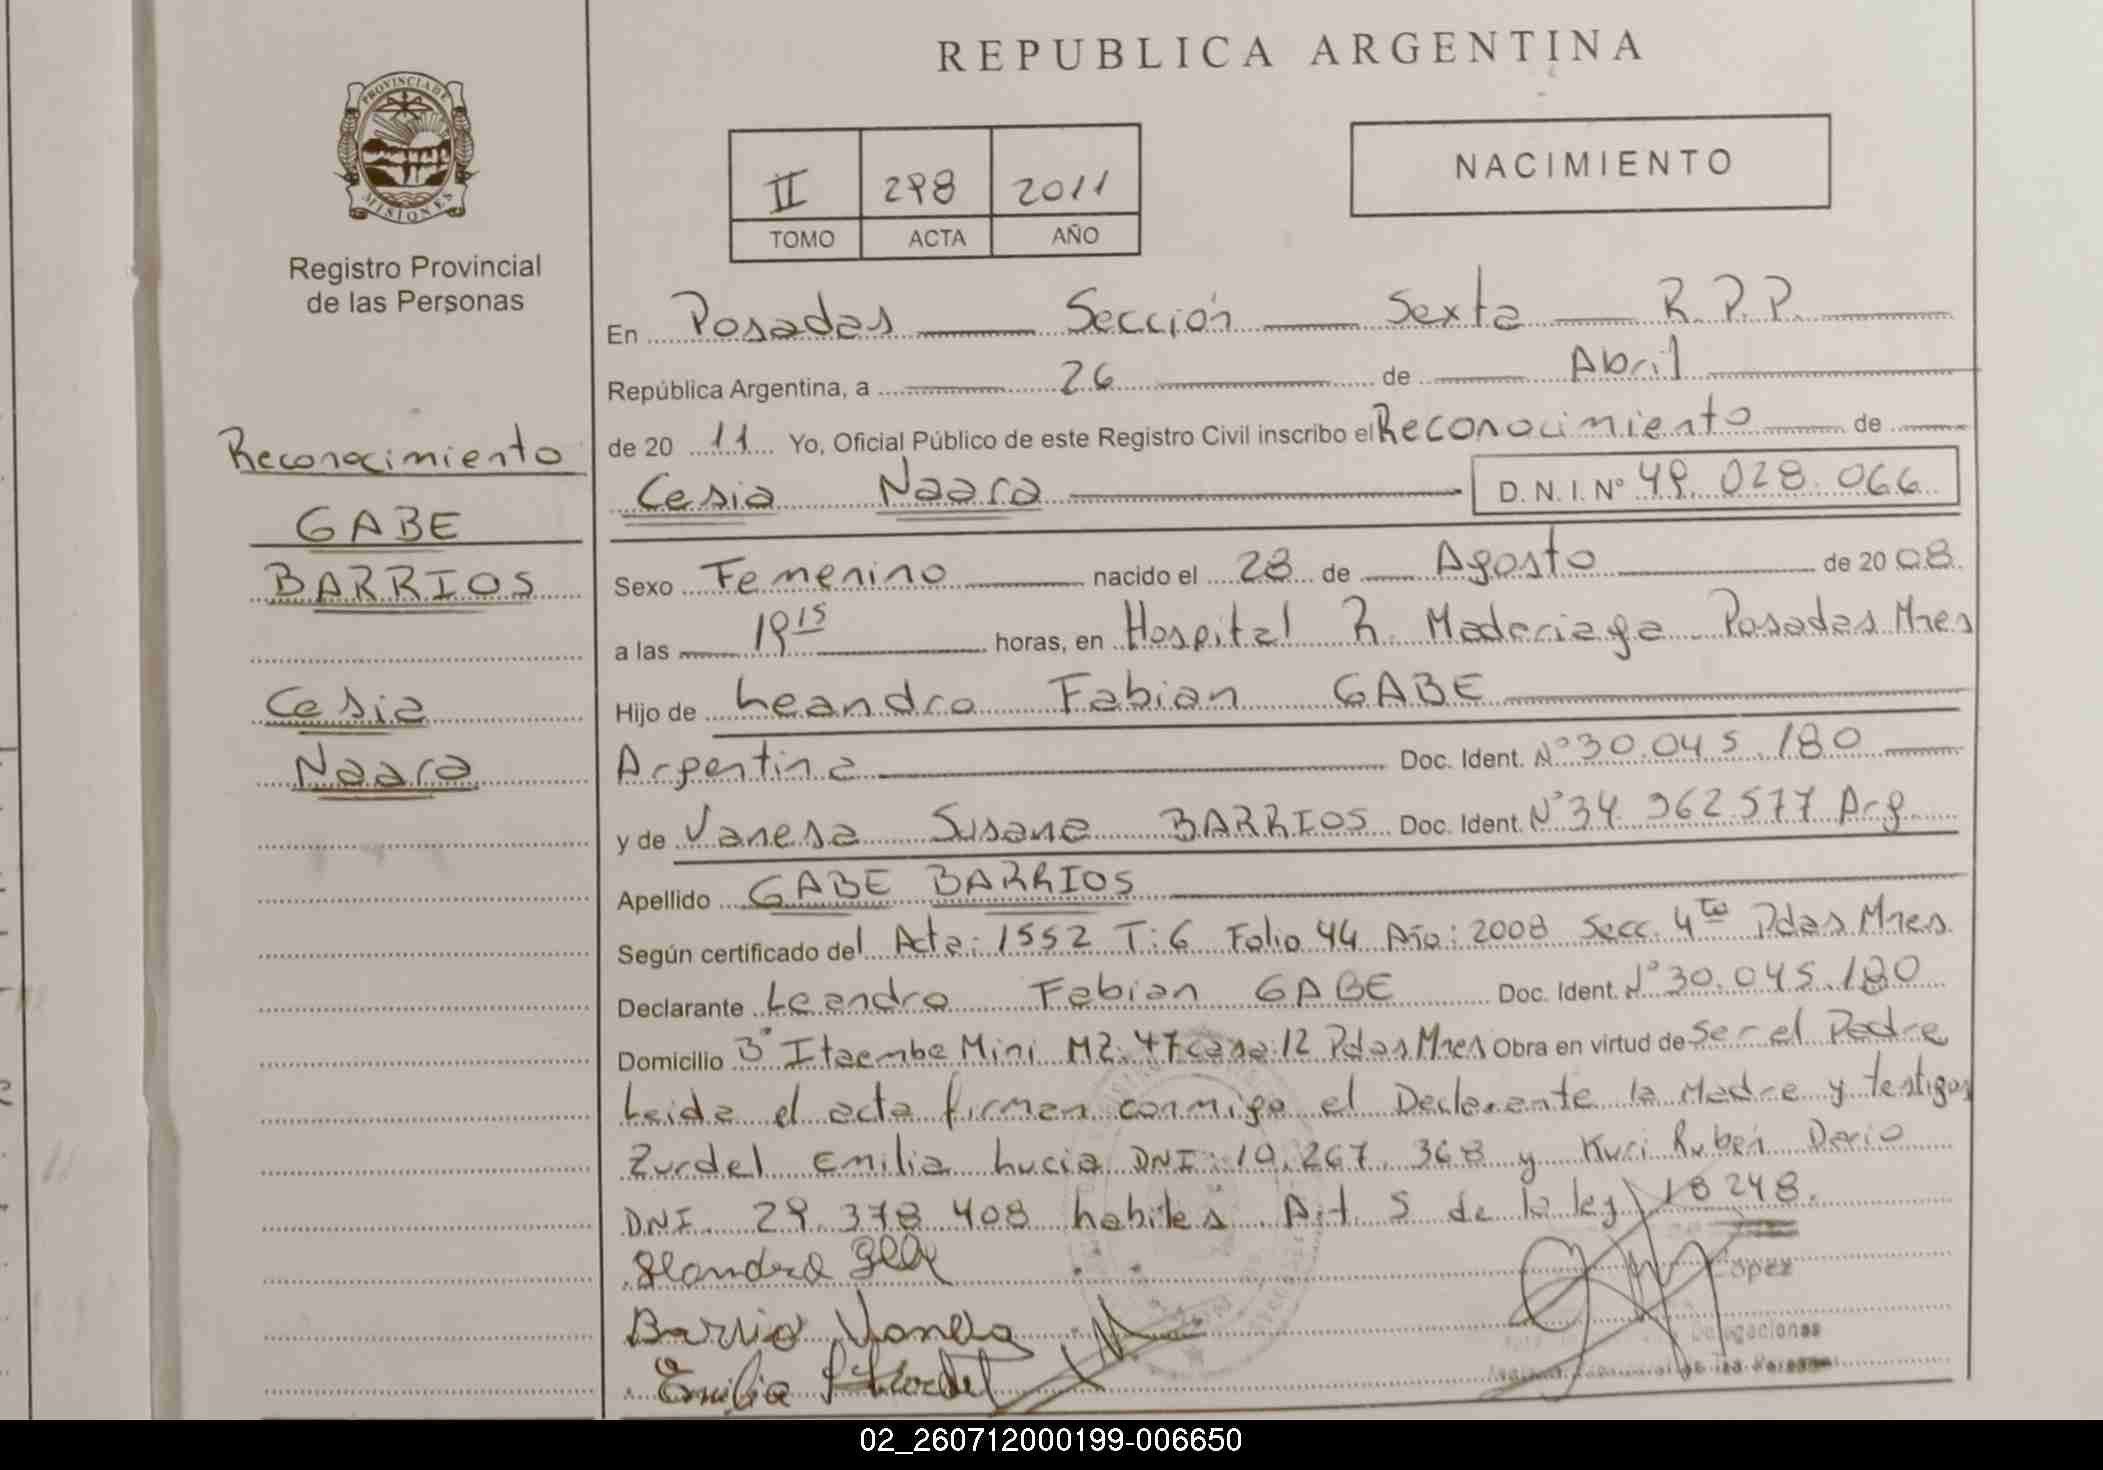 REPUBLICA ARGENTINA
PROVINCIA DE
MISIONES
Registro Provincial
de las Personas
II 298 2011
TOMO ACTA AÑO
NACIMIENTO
Reconocimiento
GABE
BARRIOS
Cesia
Naara
En Posadas Sección Sexta R.P.P.
República Argentina, a 26 de Abril
de 20 11 Yo, Oficial Público de este Registro Civil inscribo el Reconocimiento de
Cesia Naara D.N.I. Nº 49.028.066
Sexo Femenino nacido el 28 de Agosto de 2008
a las 19 15 horas, en Hospital R. Madariaga Posadas Mnes
Hijo de Leandro Fabian GABE
Argentina Doc. Ident. Nº 30.045.180
y de Vanesa Susana BARRIOS Doc. Ident. Nº 34.362.577 Arg
Apellido GABE BARRIOS
Según certificado del Acta: 1552 T: 6 Folio 44 Año: 2008 Secc. 4ta Pdas Mnes
Declarante Leandro Fabian GABE Doc. Ident. Nº 30.045.180
Domicilio Bº Itaembe Mini MZ: 47 casa: 12 Pdas Mnes Obra en virtud de Ser el Padre
Leida el acta firman conmigo el Declarante la Madre y testigos
Zurdel Emilia Lucia DNI: 10.267.368 y Kuri Rubén Dario
DNI. 29.378.408 habiles Art. 5 de la ley 18248.
Barrio Vanesa
Emilia
López
Delegaciones
02_260712000199-006650